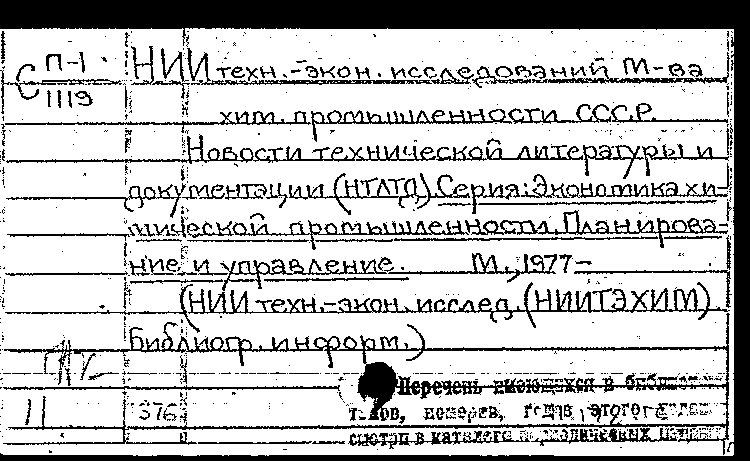 С П-1
1119
НИИ техн.-экон. исследований М-ва
хим. промышленности СССР.
Новости технической литературы и
документации (НТЛТД). Серия: Экономика хи-
мической промышленности. Планирова-
ние и управление. М., 1977-
(НИИ техн.-экон. исслед. (НИИТЭХИМ)
Библиогр. информ.)
11 376
Перечень имеющихся в
томов, номеров, годов этого
смотри в каталоге периодических